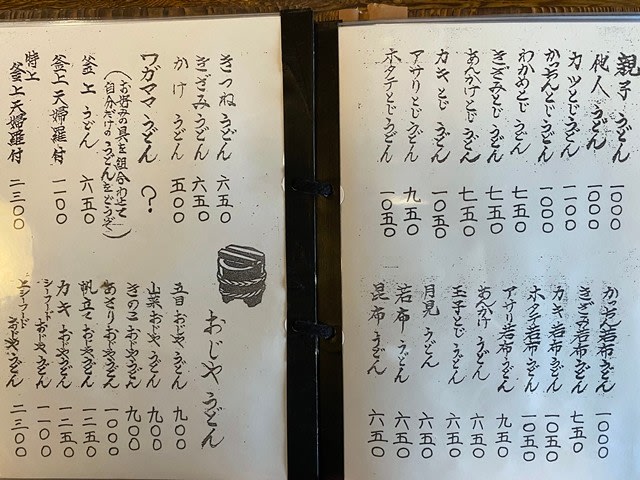 親子うどん 一〇〇〇
他人うどん 一〇〇〇
カツとじうどん 一一〇〇
かつおとじうどん 一〇〇〇
わかめとじうどん 七五〇
きざみとじうどん 七五〇
あんかけとじうどん 七五〇
カキとじうどん 一〇五〇
アサリとじうどん 九五〇
ホタテとじうどん 一〇五〇
かつおん若布うどん 一〇〇〇
きざみ若布うどん 七五〇
カキ若布うどん 一〇五〇
ホタテ若布うどん 一〇五〇
アサリ若布うどん 九五〇
あんかけうどん 六五〇
玉子とじうどん 六五〇
月見うどん 六五〇
若布うどん 六五〇
昆布うどん 六五〇
きつねうどん 六五〇
きざみうどん 六五〇
かけうどん 五〇〇
ワガママうどん ?
(お好みの具を組合わせて
自分だけのうどんをどうぞ)
釜上うどん 六五〇
釜上天婦羅付 一一〇〇
特上
釜上天婦羅付 二三〇〇
おじやうどん
五目おじやうどん 九〇〇
山菜おじやうどん 九〇〇
きのこおじやうどん 九〇〇
あさりおじやうどん 一〇〇〇
帆立ておじやうどん 一二五〇
カキおじやうどん 一二五〇
シーフードおじやうどん 一一〇〇
上シーフードおじやうどん 二三〇〇